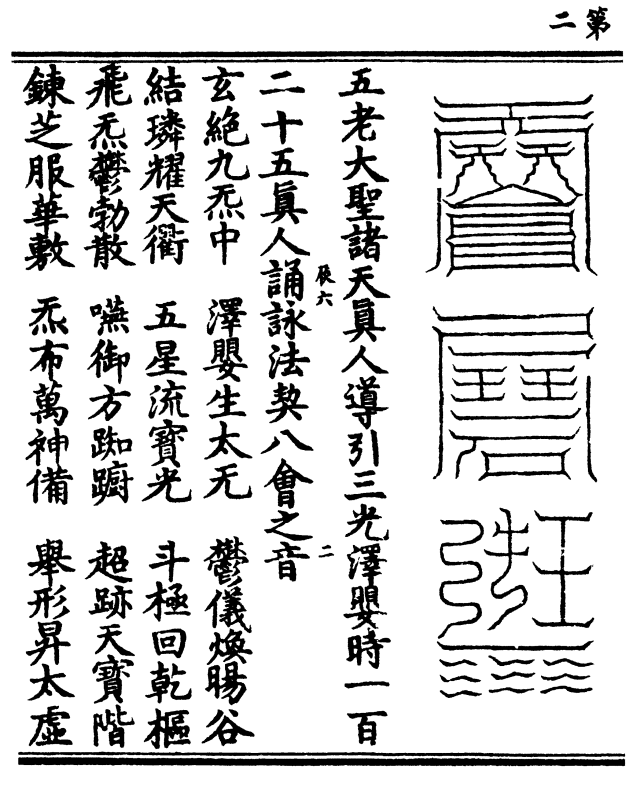 第二
五老大聖諸天眞人導引三光澤嬰時一百
二十五眞人誦詠法契八會之音
辰六
二
玄絶九炁中　澤嬰生太无　鬱儀煥暘谷
結璘耀天衢　五星流寶光　斗極回乾樞
飛炁鬱勃散　嚥御方踟躕　超跡天寶階
鍊芝服華敷　炁布萬神備　舉形昇太虛